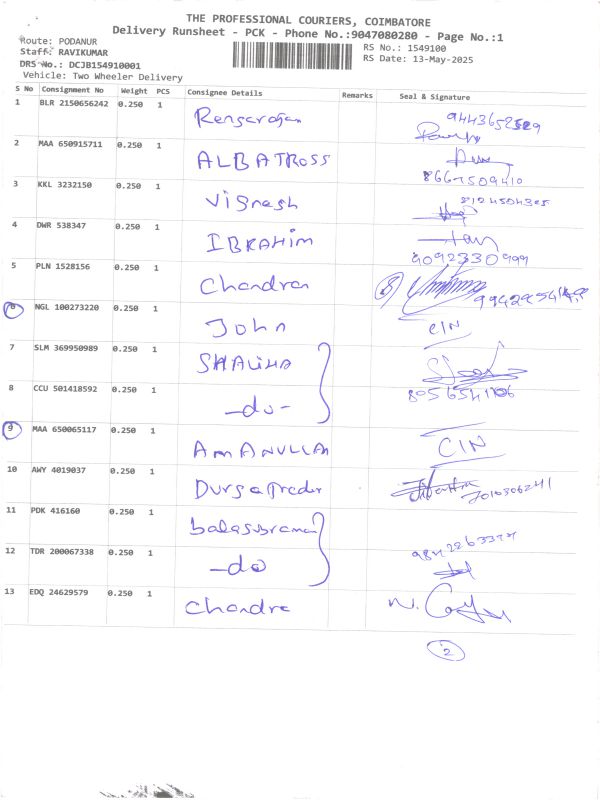 THE PROFESSIONAL COURIERS, COIMBATORE
Delivery Runsheet - PCK - Phone No.:9047080280 - Page No.:1
Route: PODANUR
RS No.: 1549100
Staff: RAVIKUMAR
RS Date: 13-May-2025
DRS No.: DCJB154910001
Vehicle: Two Wheeler Delivery
S No Consignment No Weight PCS Consignee Details Remarks Seal & Signature
1 BLR 2150656242 0.250 1 Rengarajan
2 MAA 650915711 0.250 1 ALBATROSS
8667509410
3 KKL 3232150 0.250 1 Vignesh 8124504385
4 DWR 538347 0.250 1 IBRAHIM
9092330999
5 PLN 1528156 0.250 1 Chandran
6 NGL 100273220 0.250 1 John CIN
7 SLM 369950989 0.250 1 SHALIHA
8 CCU 501418592 0.250 1 -do-
9 MAA 650065117 0.250 1 AMANULLAH CIN
10 AWY 4019037 0.250 1 Durga Trader
11 PDK 416160 0.250 1
12 TDR 200067338 0.250 1 -do
13 EDQ 24629579 0.250 1 Chandra
2